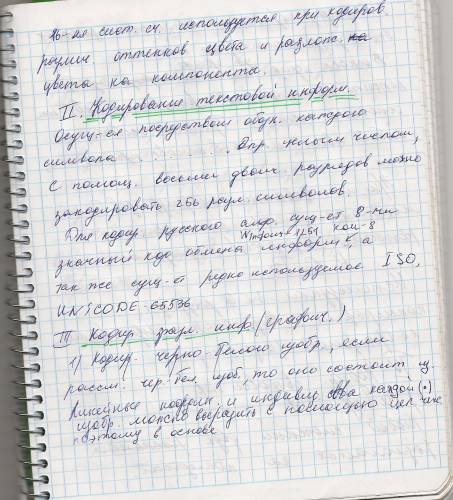 16-ля сист. сч. используется при кодиров.
различ оттенков цвета и разлож.
цвета на компонента.
II. Кодирование текстовой информ.
Осущ-ся посредством обозн. каждого
символа опр. целым числом,
с помощ. восьми двоич. разрядов можно
закодировать 256 разл. символов.
Для кодир. русского алф. сущ-ет 8-ми
Windows-1251 кои-8
значный код обмена информ, а
так же сущ-ет редко используемое ISO,
UNICODE-65536
III Кодир. инф. (графич.)
1) Кодир. черно-белого изобр., если
рассм. чер. бел. изоб, то оно состоит из
Линейные коорд. и индивид. св-ва каждой (•)
изобр. можно выразить с помощью цел. чис
поэтому в основе